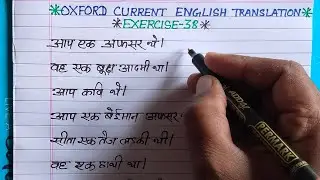 *OXFORD CURRENT ENGLISH TRANSLATION*
*EXERCISE-38*
आप एक अफसर थे।
वह एक बूढ़ा आदमी था।
आप कवि थे।
आप एक बेईमान अफसर
सीता एक तेज लड़की थी।
वह एक हाथी था।
PERMARK